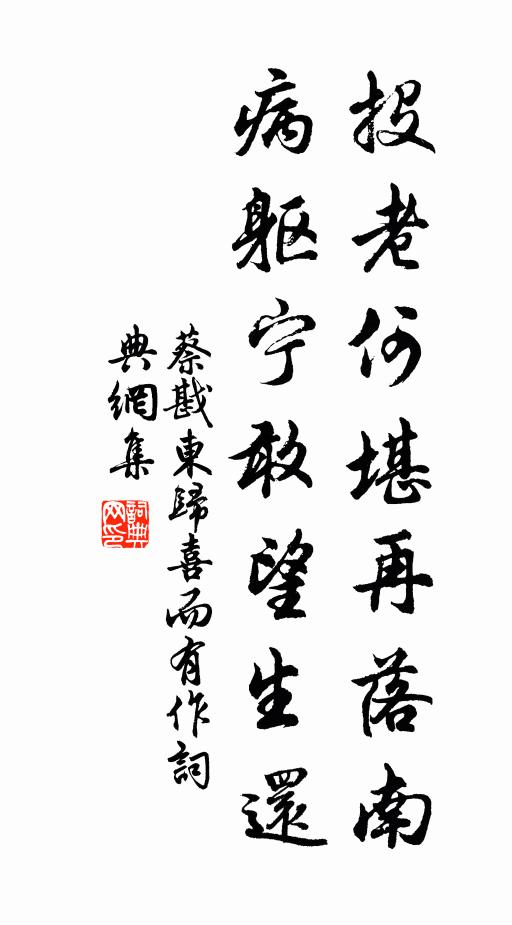 投老何堪再落南
病軀宁敢望生還
蔡戡東歸喜而有作詞
典網集
詞典
网印